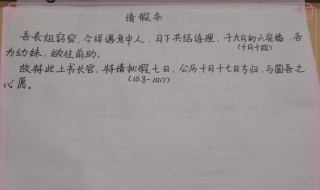 请假条
吾表姐窈窕，今得遇意中人，月下共结连理，于九月初六癸婚，吾
(十月十四)
为幼妹，欲往前助。
故将此上书长官，将请批假七日，公历十月十七日乃归，与圆吾之
(10.8-10.17)
心愿。